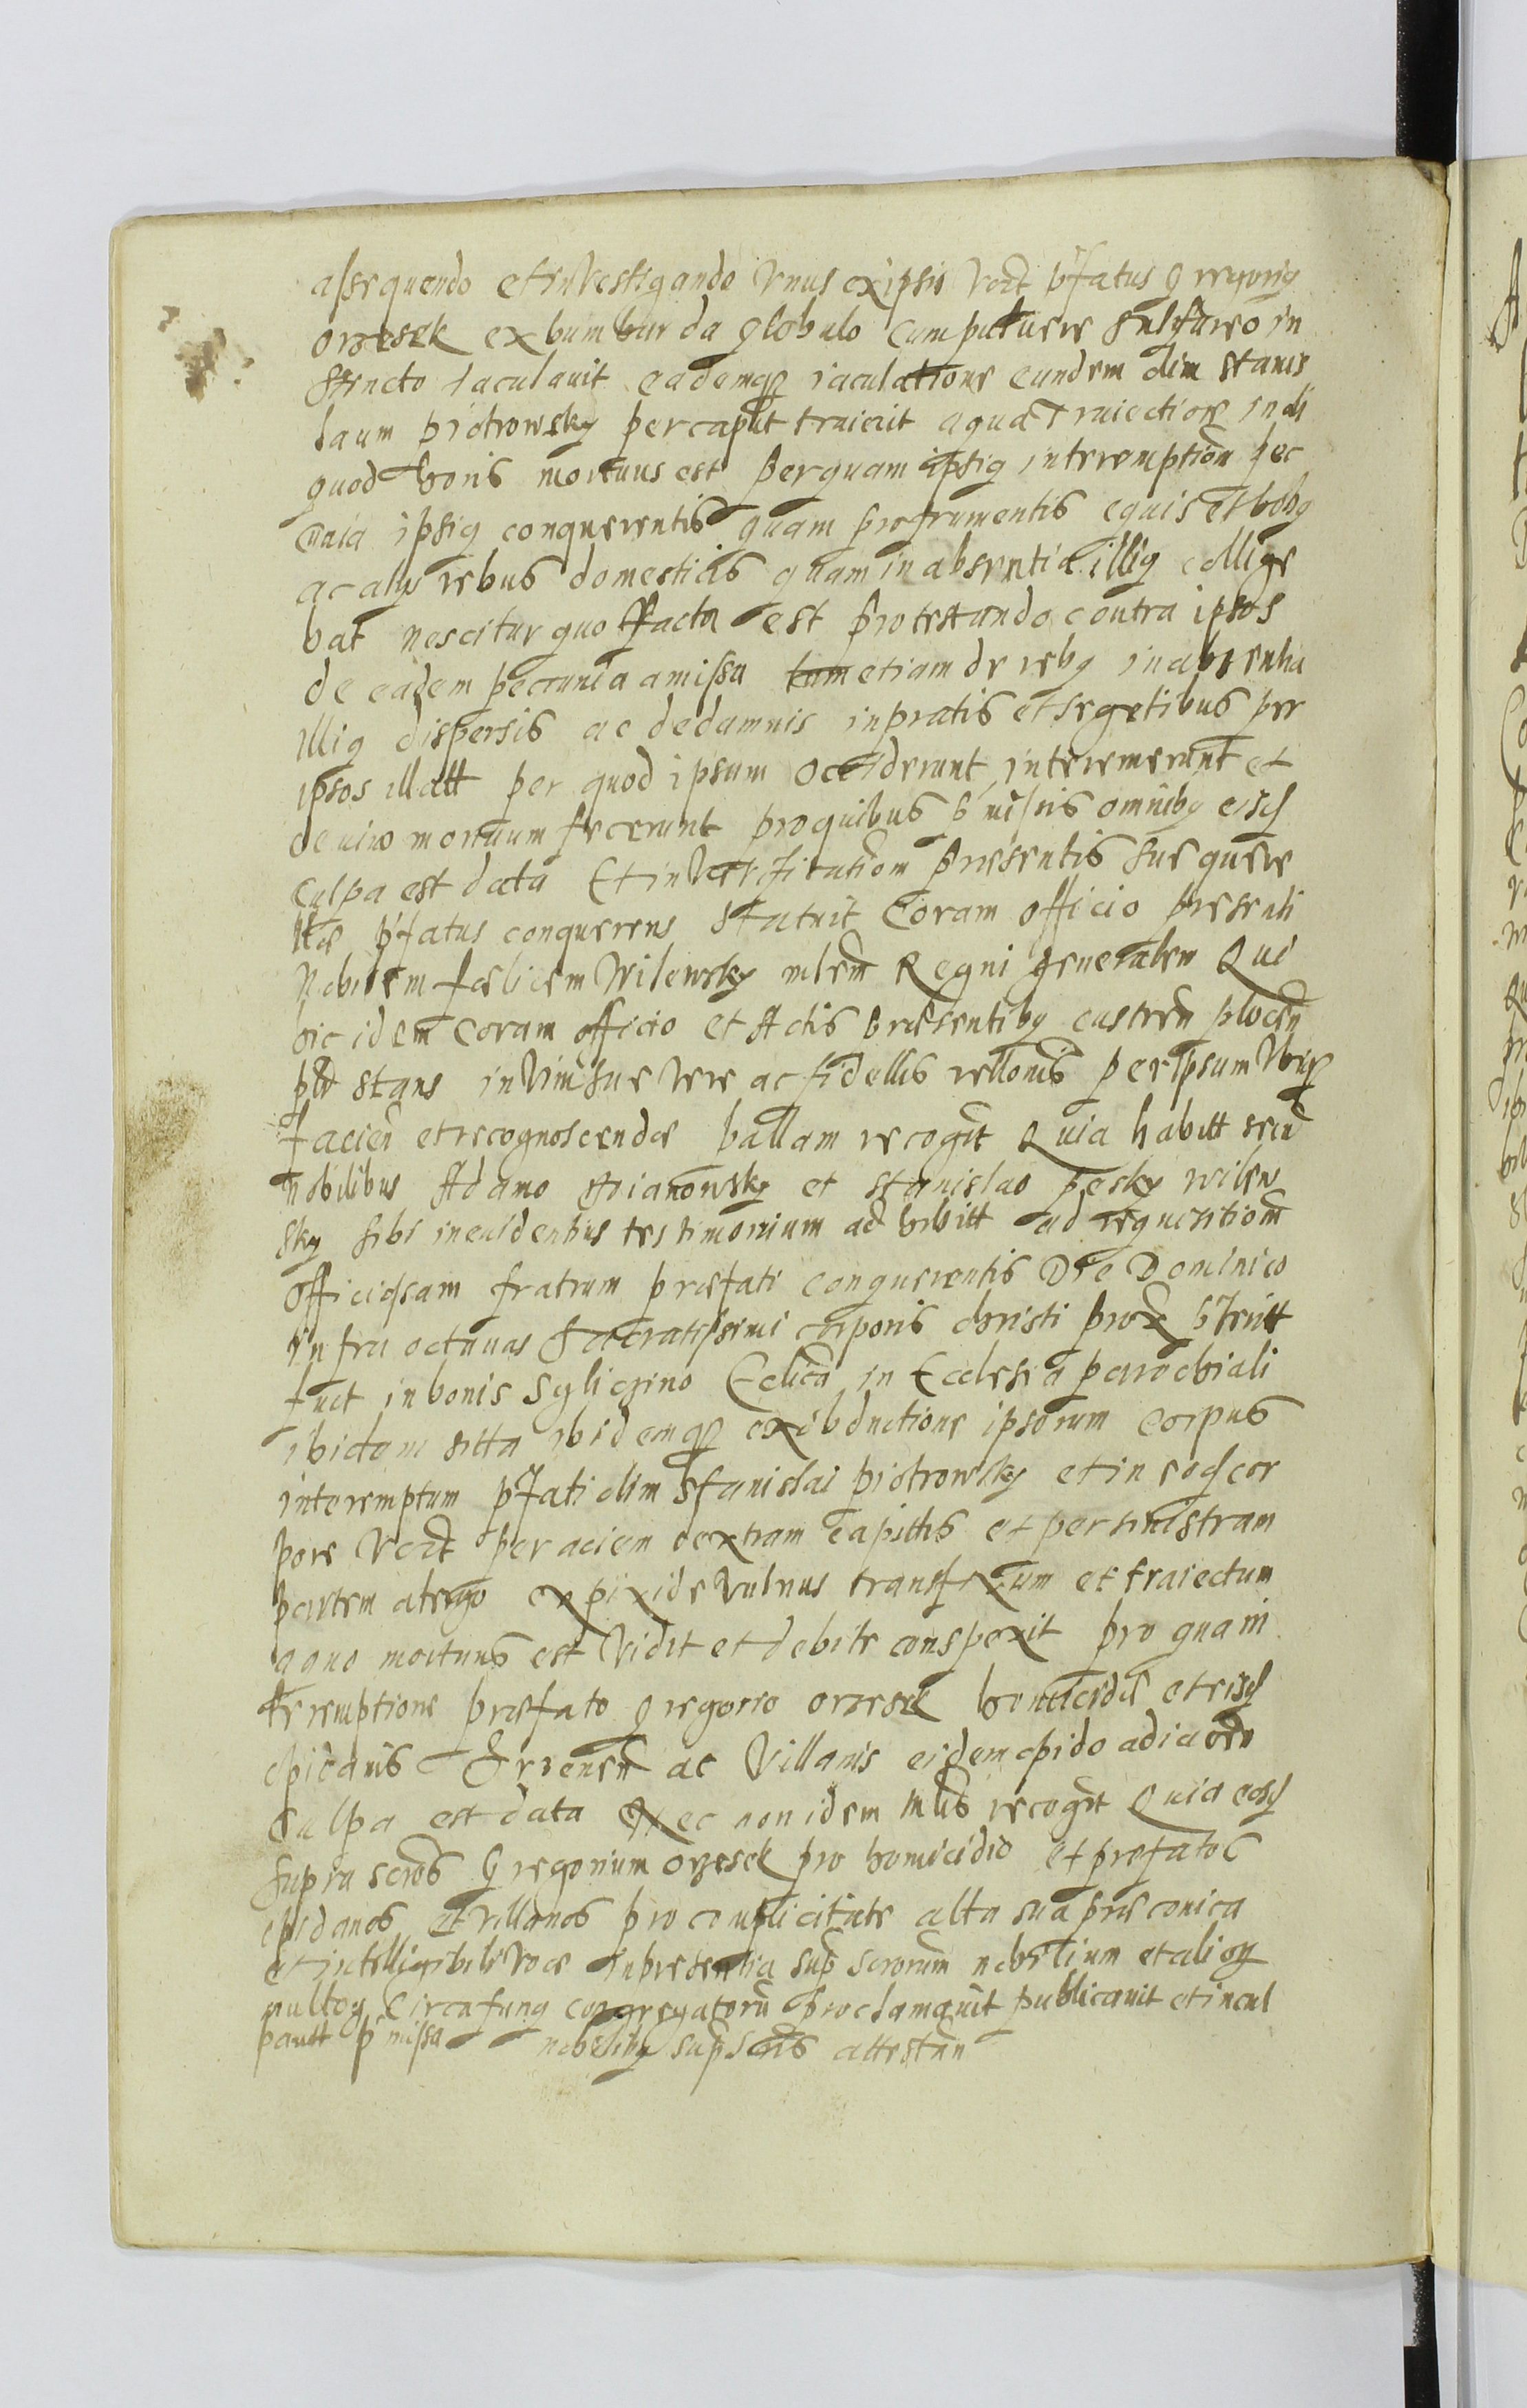 assequendo et investigando Unus ex ipsis vcȝt pfatus Gregorig
orzesek ex bumbarda globulo cum pulvere sulfureo in
stincto iaculauit eademqȝ iaculatione eundem olim Stanis
laum piotrowsky per caput traiecit a qua Traiectioe in ali
quod horis mortuus est Per quam ipsig interemptiom pec
unia ipsig conquerentis quam pro frumentis equis et bobg
ac alys rebus domesticis quam in absentia illig collige
bat nescitur quo ffacta est Protestando contra ipsos
de eadem pecunia amissa tum etiam de rebg in absentia
illig dispersis ac de damnis in pratis et segetibus per
ipsos illatt per quod ipsum Occiderunt interemerunt et
de uiuo mortuum fecerunt pro quibus pmissis omnibg eisd
culpa est data Et in verificationem Presentis sue quere
llae pfatus conquerens Statuit Coram officio presenti
Nobilem foelicem Wilewsky mlem Regni generalem Qui
hic idem Coram officio et Actis Praesentibg castren plocen
plr stans in Vim sue vere ac fidellis rellonis per ipsum Ubiqȝ
facien et recognoscendae ballam recogt Quia habitt secu
nobilibus Adamo et Stanislao pesky wilew
sky sibi in euidentius testimonium adhibitt ad requisitiom
Officiosam fratrum praefati conquerentis Die Dominico
infra octauas Sacratissimi corporis christi prox ptritt
fuit in bonis Sgliczino Eclica in Ecclesia parochiali
ibidem sitta ibidemqȝ ex obductione ipsorum corpus
interemptum pfati olim Stanislai piotrowsky et in eod cor
pore vcȝt per aciem dextram capittis et per sinistram
partem a tergo ex pixide vulnus transfixum et traiectum
a quo mortuus est vidit et debite conspexit pro qua in
teremptione praefato Gregorio orzesek homicidae et eisd
opidanis ac Villanis eidem opido adiacen
culpa est data Nec non idem mlis recogt Quia eosd
supra scros Gregorium orzesek pro homicidio et prefatos
opidanos et villanos pro complicitate alta sua preconica
et intelligibili voce in presentia sup scrorum nobilium et aliorg
multorg Circa fung congregatoru proclamauit publicauit et incul
pauit pmissa nobilibg sup scris attestan